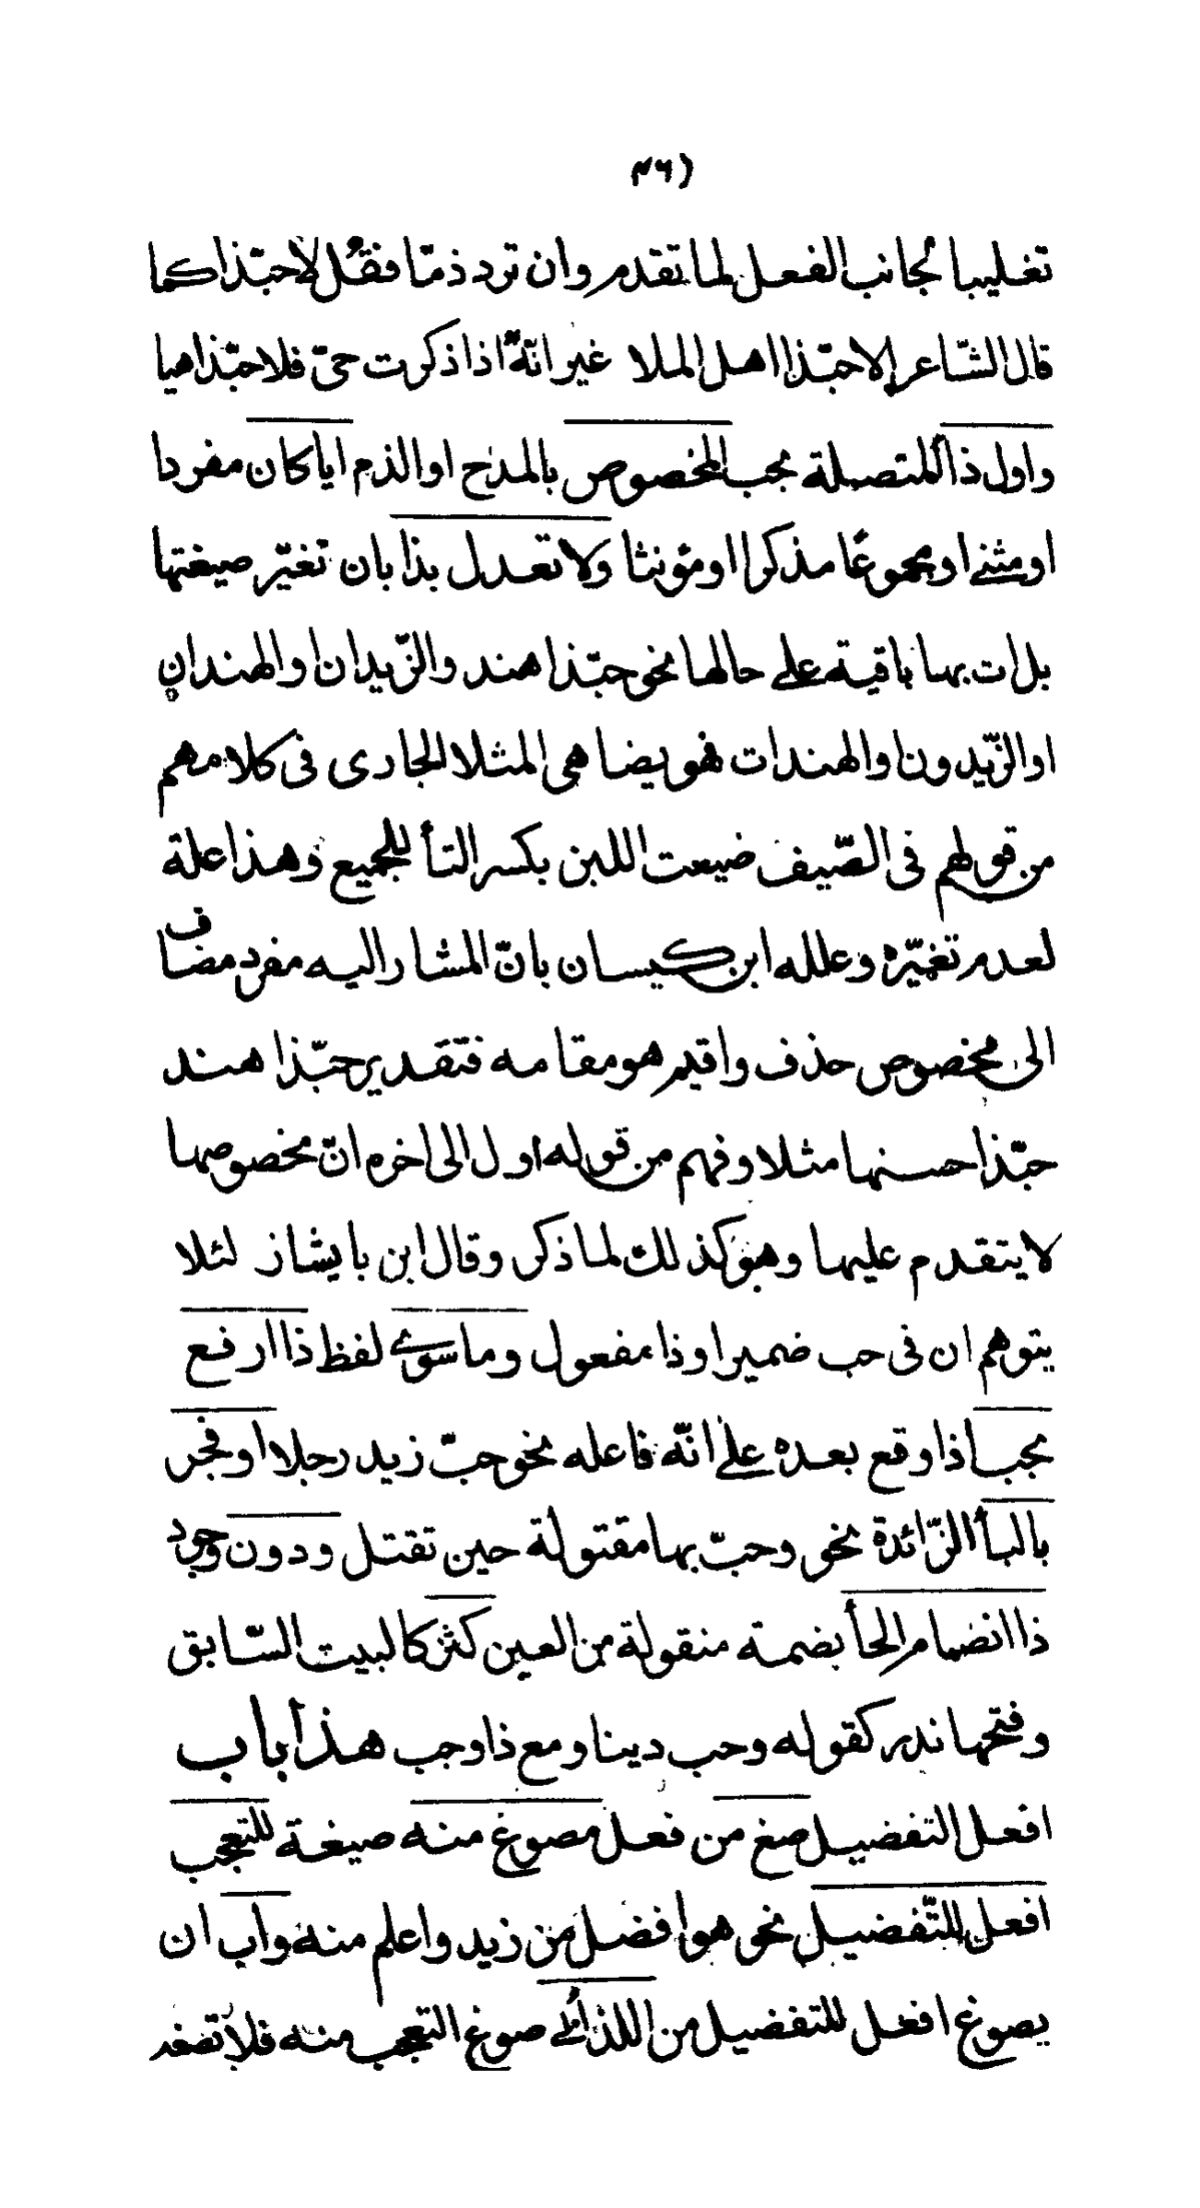 تغليبا لجانب الفعل لما تقدم وان ترد ذمّا فقل لا حبّذا كما
قال الشّاعر الا حبّذا اهل الملا غير انّه اذا ذكرت حىّ فلا حبّذا هيا
واول ذا المتصلة بحب المخصوص بالمدح او الذم ايا كان مفردا
او مثنے او مجموعًا مذكرا او مؤنثا ولا تعدل بذا بان تغيّر صيغتها
بل ات بها باقية علے حالها نحو حبّذا هند والزّيدان او الهندان
او الزّيدون او الهندات فهو يضاهى المثلا الجارى فى كلامهم
من قولهم فى الصّيف ضيعت اللبن بكسر التأ للجميع وهذا علة
لعدم تغيّره وعلله ابن كيسان بانّ المشار اليه مفرد مضاف
الى مخصوص حذف واقيم هو مقامه فتقدير حبّذا هند
حبّذا حسنها مثلا وفهم من قوله اول الى اخره انّ مخصوصها
لا يتقدم عليها وهو كذلك لما ذكر وقال ابن بابشاذ لئلا
يتوهم ان فى حب ضميرا وذا مفعول وما سوے لفظ ذا ارفع
بحب اذا وقع بعده علے انّه فاعله نحو حبّ زيد رجلا او فجر
بالبأ الزّائدة نحو وحبّ بها مقتولة حين تقتل ودون وجود
ذا انضمام الحأ بضمة منقولة من العين كثر كالبيت السّابق
وفتحها ندر كقوله وحب دينا ومع ذا وجب هذا باب
افعل التفضيل صغ من فعل مصوغ منه صيغة للتعجب
افعل للتّفضيل نحو هو افضل من زيد واعلم منه وأب ان
يصوغ افعل للتفضيل من اللذ أبے صوغ التعجب منه فلا تصغه